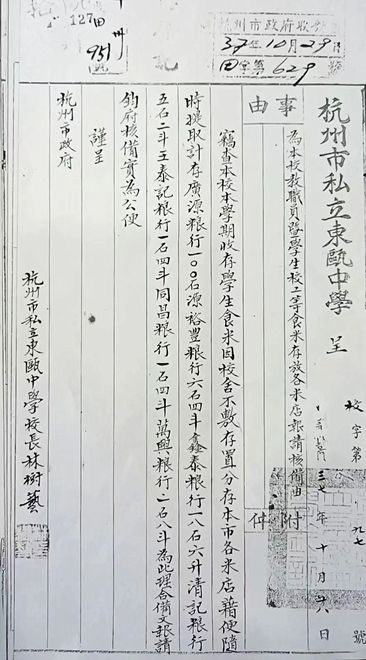 杭州市政府收
37年10月29日
田字第629號
127田
951
杭州市私立東甌中學 呈
校字第 九七 號
三七年十月廿八日
事由
為本校教職員暨學生校工等食米存放各米店報請核備由
附件
竊查本校本學期收存學生食米因校舍不敷存置分存本市各米店藉便隨
時提取計存廣源粮行一〇〇石源裕豐粮行六石四斗鑫泰粮行一八石六升清記粮行
五石二斗王泰記粮行一石四斗同昌粮行一石四斗萬興粮行二石八斗為此理合備文報請
鈞府核備實為公便
謹呈
杭州市政府
杭州市私立東甌中學校長林樹藝